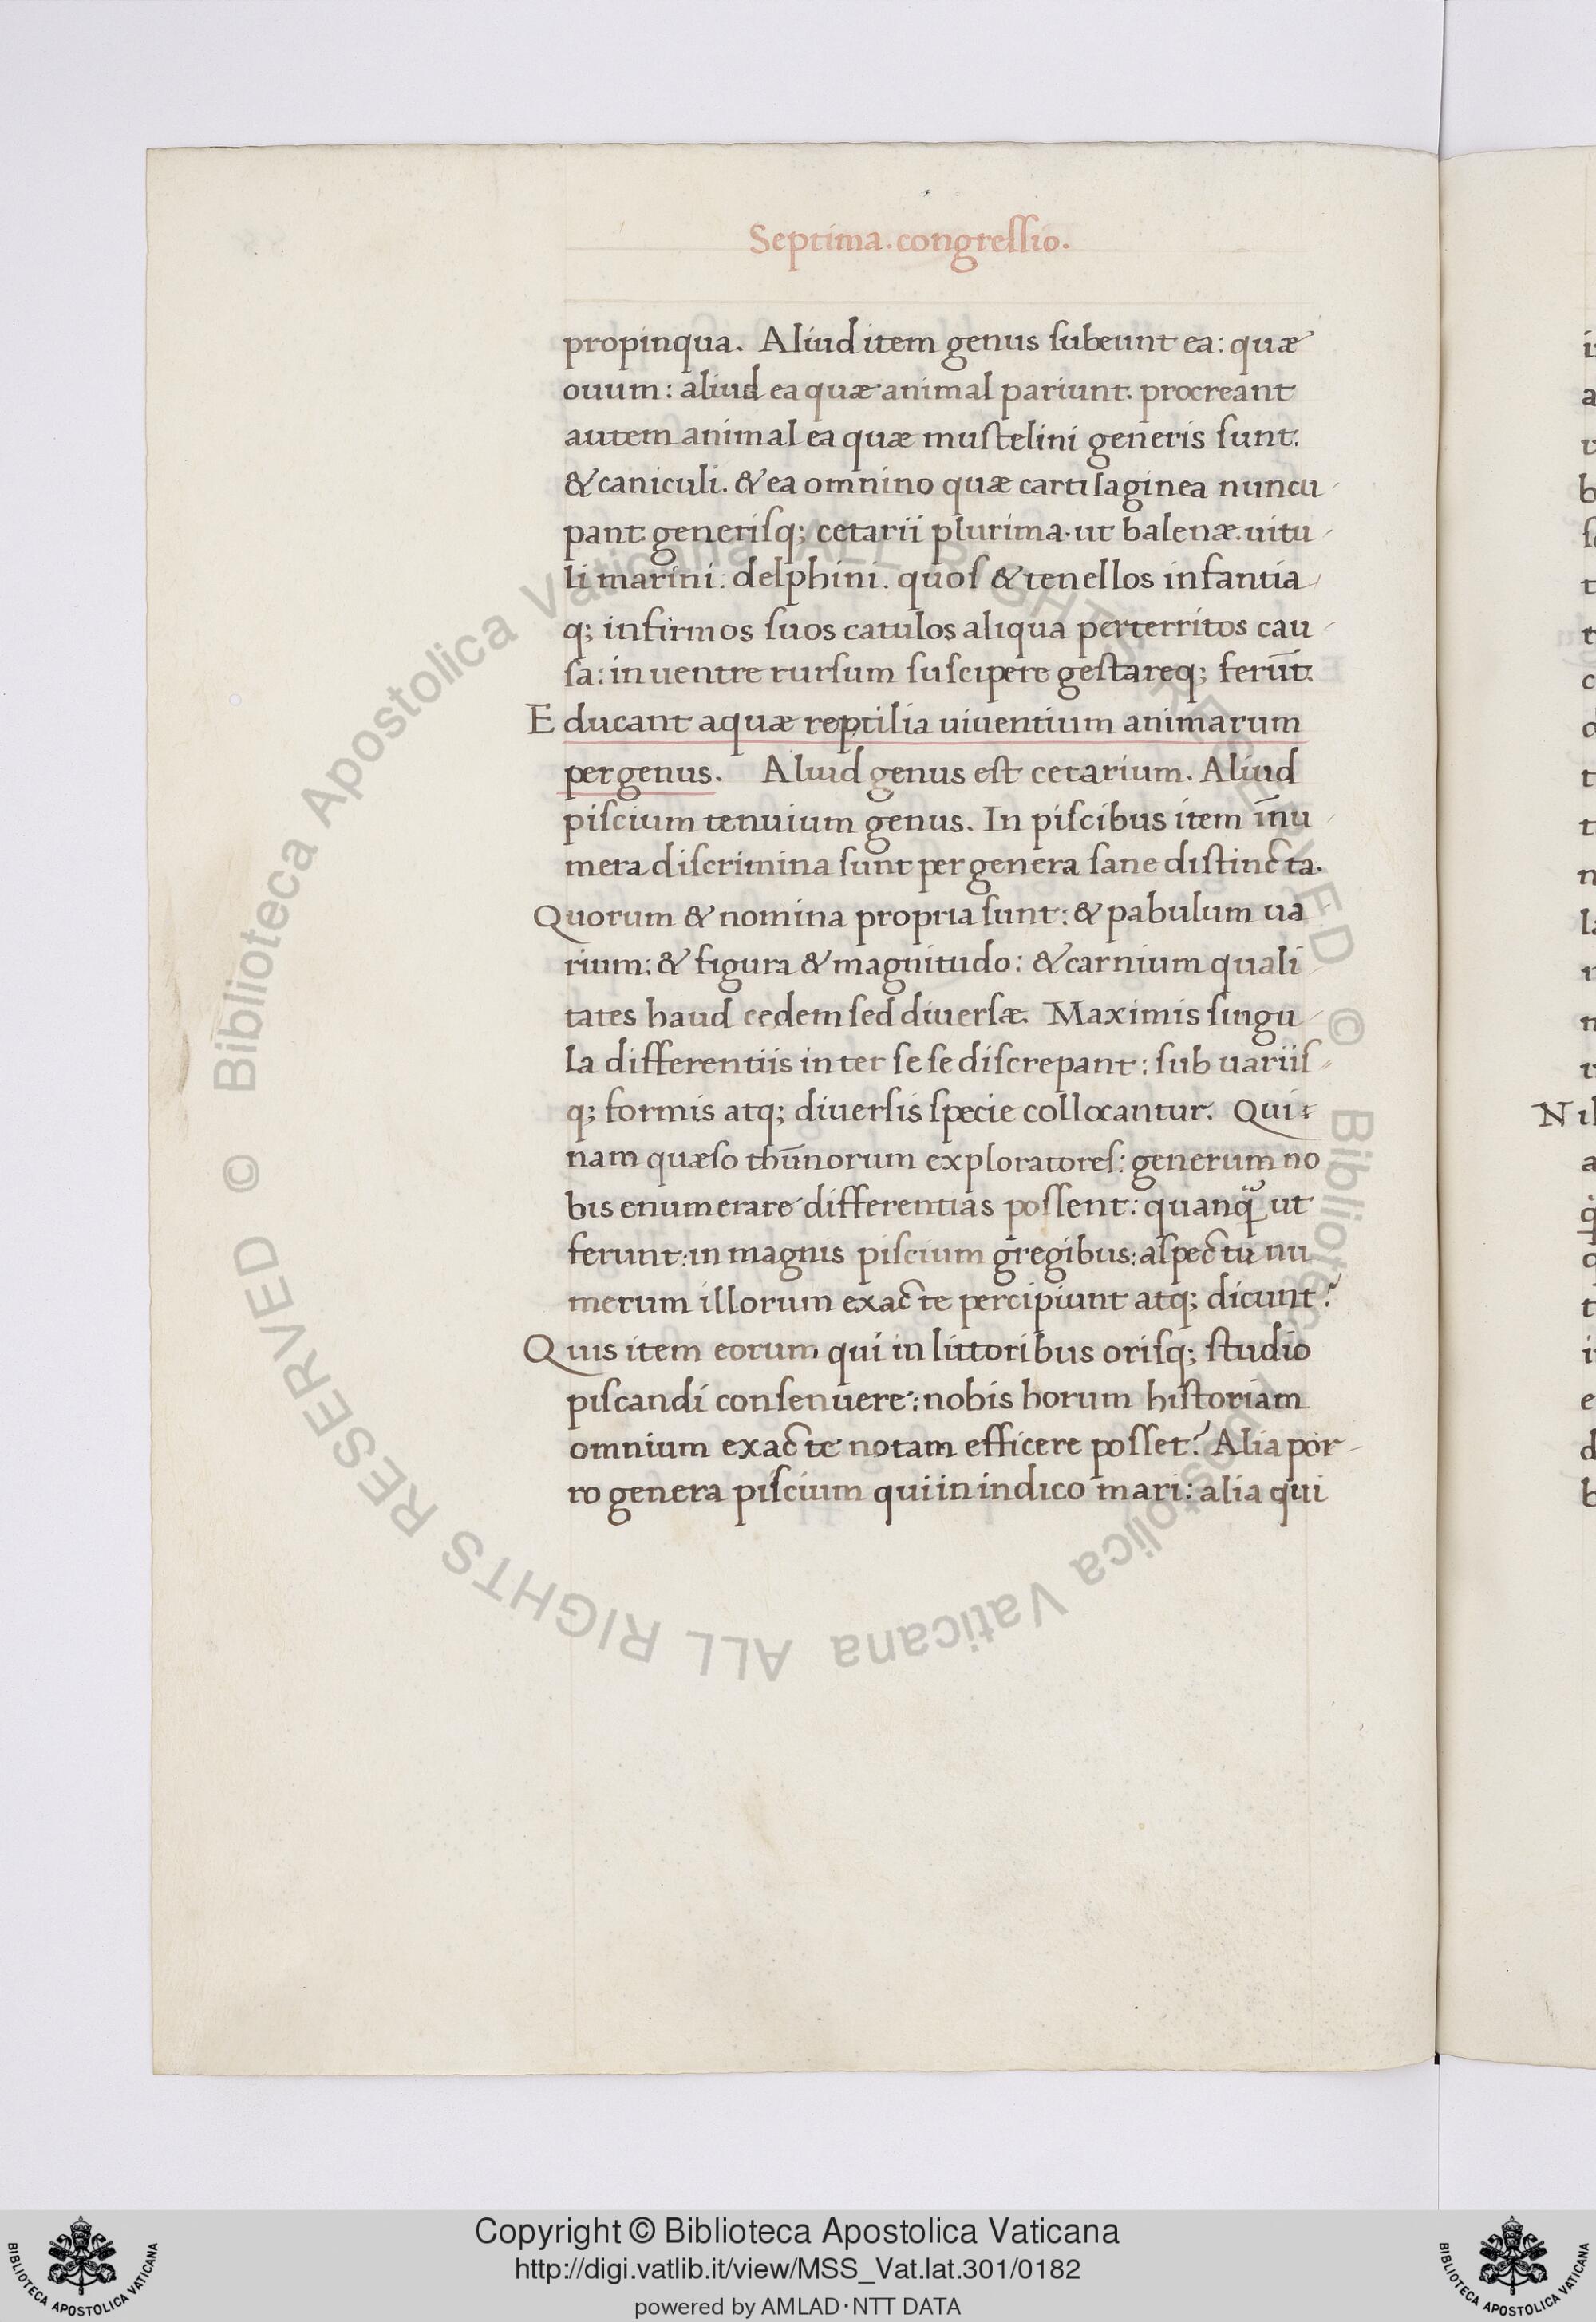 Septima.congreſſio.
propinqua. Aliud item genus ſubeunt ea: quæ
ouum: aliud ea quæ animal pariunt. procreant
autem animal ea quæ muſtelini generis ſunt.
& caniculi. & ea omnino quæ cartilaginea nuncu
pant: generiſq; cetarii plurima. ut balenæ. uitu
li marini: delphini. quoſ & tenellos infantia
q; infirmos ſuos catulos aliqua perterritos cau
ſa: in uentre rurſum ſuſcipere geſtareq; ferūt.
Educant aquæ reptilia uiuentium animarum
per genus. Aliud genus eſt cetarium. Aliud
piſcium tenuium genus. In piſcibus item īnu
mera diſcrimina ſunt per genera ſane diſtincta.
Quorum & nomina propria ſunt: & pabulum ua
rium: & figura & magnitudo: & carnium quali
tates haud eędem ſed diuerſæ. Maximis ſingu
la differentiis inter ſe ſe diſcrepant: ſub uariiſ
q; formis atq; diuerſis ſpecie collocantur. Qui
nam quæſo thūnorum exploratoreſ: generum no
bis enumerare differentias poſſent: quanq̃ ut
ferunt: in magnis piſcium gregibus: aſpectu nu
merum illorum exacte percipiunt atq; dicunt?
Quis item eorum qui in littoribus oriſq; ſtudio
piſcandi conſenuere: nobis horum hiſtoriam
omnium exacte notam efficere poſſet? Alia por
ro genera piſcium qui in indico mari: alia qui
© Biblioteca Apostolica Vaticana ALL RIGHTS RESERVED © Biblioteca Apostolica Vaticana ALL RIGHTS RESERVED
Copyright © Biblioteca Apostolica Vaticana
http://digi.vatlib.it/view/MSS_Vat.lat.301/0182
powered by AMLAD·NTT DATA
BIBLIOTECA APOSTOLICA VATICANA
BIBLIOTECA APOSTOLICA VATICANA